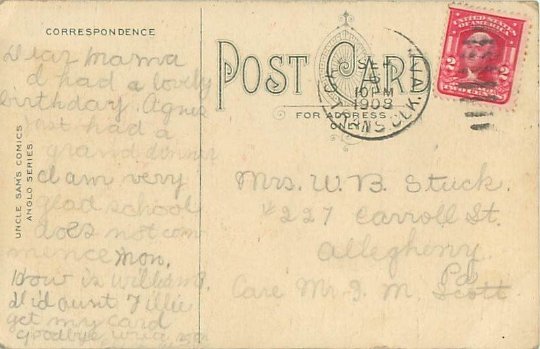 CORRESPONDENCE
POST CARD
FOR ADDRESS
ONLY
UNITED STATES
OF AMERICA
2 2
10 PM
1908
UNCLE SAMS COMICS
ANGLO SERIES
Dear Mama
I had a lovely
birthday. Agnes
just had a
grand dinner
I am very
glad school
does not com
mence Mon.
How is William?
Did aunt Tillie
get my card
Goodbye, write
Mrs. W. B. Stuck.
#227 Carroll St.
Allegheny
Pa
Care Mr. J. M. Scott